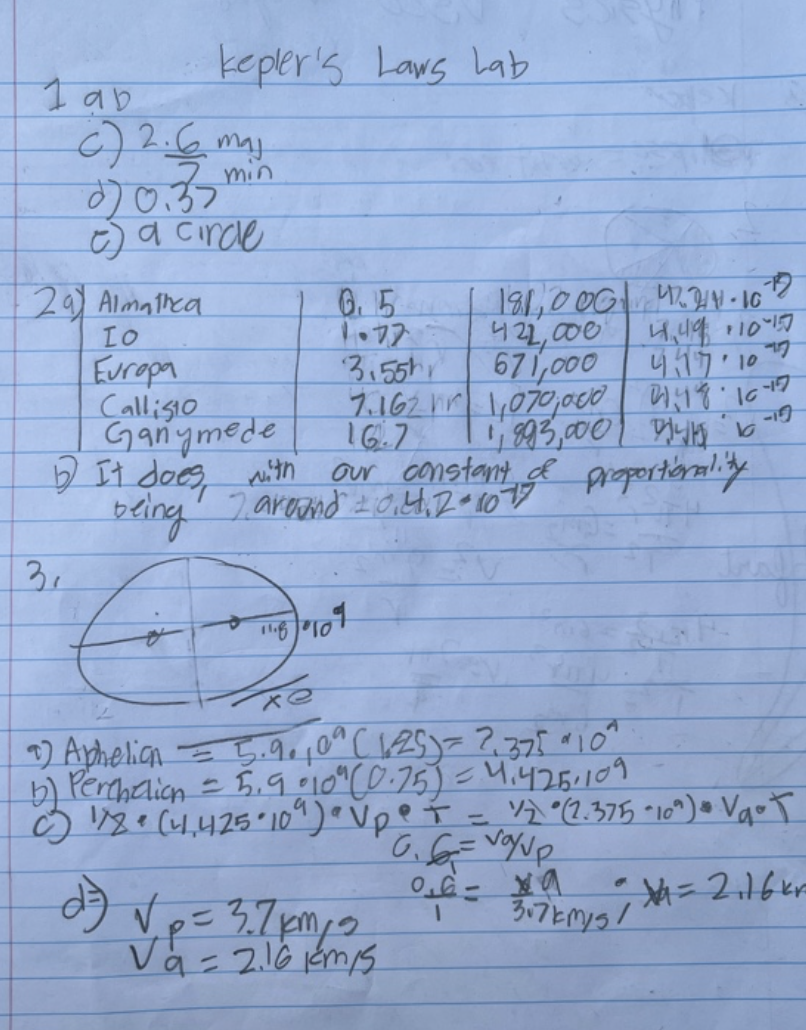 Kepler's Laws Lab
1 ab
c) 2.6 maj
7 min
d) 0.37
e) a circle
2a) Almathea 0.5 181,000
Io 1.77 421,000 4.49 · 10⁻¹⁷
Europa 3.55hr 671,000 4.17 · 10⁻¹⁷
Callisto 7.162 hr 1,070,000 4.18 · 10⁻¹⁷
Ganymede 16.7 1,893,000
b) It does, with our constant of proportionality
being around 4.2 · 10⁻¹⁷
3.
11.8 · 10⁹
xe
a) Aphelion = 5.9 · 10⁹ (1.25) = 7.375 · 10⁹
b) Perehelion = 5.9 · 10⁹ (0.75) = 4.425 · 10⁹
c) 1/2 · (4.425 · 10⁹) · Vp · T = 1/2 · (7.375 · 10⁹) · Va · T
0.6 = Va/Vp
0.6/1 = Va/3.7km/s ; Va = 2.16 km
d) Vp = 3.7 km/s
Va = 2.16 km/s